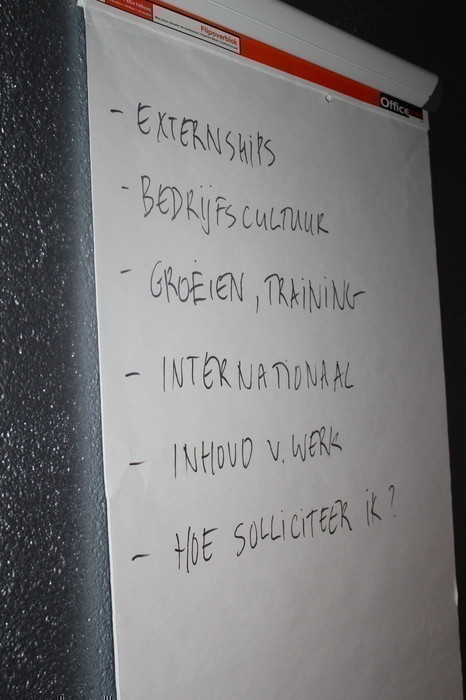 Flipoverblok
Office
- EXTERNSHIPS
- BEDRIJFSCULTUUR
- GROEIEN, TRAINING
- INTERNATIONAAL
- INHOUD V. WERK
- HOE SOLLICITEER IK?